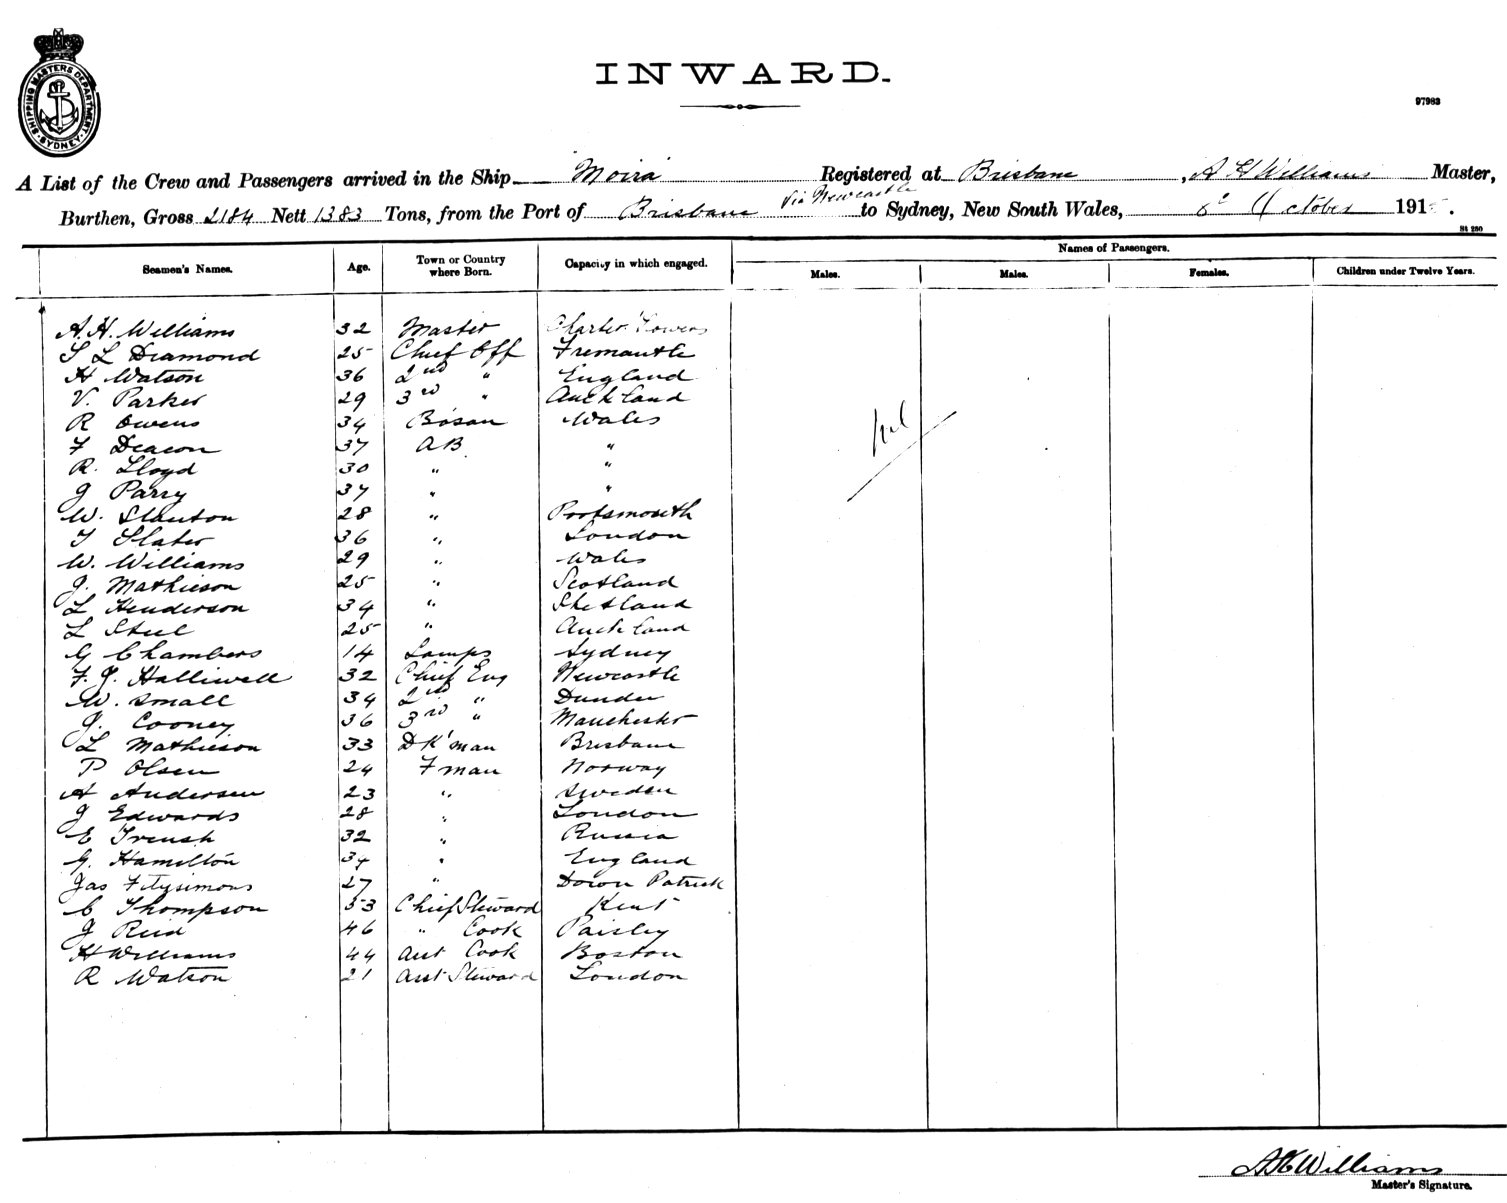 SHIPPING MASTERS DEPARTMENT. SYDNEY.
INWARD.
97983
A List of the Crew and Passengers arrived in the Ship "Moira" Registered at Brisbane, A H Williams Master,
Burthen, Gross 2184 Nett 1383 Tons, from the Port of Brisbane via Newcastle to Sydney, New South Wales, October 191
St 250
Seamen's Names. Age. Town or Country where Born. Capacity in which engaged. Names of Passengers.
Males. Males. Females. Children under Twelve Years.
A. H. Williams 32 Master Charters Towers
S L Diamond 25 Chief Off Fremantle
H Watson 36 2nd " England
V. Parker 29 3rd " Auckland
R Owens 34 Bosan Wales
F Deacon 37 AB "
Nil
R. Lloyd 30 " "
J Parry 37 " "
W. Stanton 28 " Portsmouth
T Slater 36 " London
W. Williams 29 " Wales
J. Mathieson 25 " Scotland
L Henderson 34 " Shetland
L Steel 25 " Auckland
G Chambers 14 Lamps Sydney
F. J. Halliwell 32 Chief Eng Newcastle
W. Small 34 2nd " Dundee
J. Cooney 36 3rd " Manchester
L Mathieson 33 DK'man Brisbane
P Olsen 24 Fman Norway
A Andersen 23 " Sweden
J Edwards 28 " London
E Trensh 32 " Russia
G. Hamilton 34 " England
Jas Fitzsimons 27 " Down Patrick
C Thompson 53 Chief Steward Kent
J Reid 46 " Cook Paisley
H Williams 44 Asst Cook Boston
R Watson 21 Asst Steward London
A H Williams
Master's Signature.